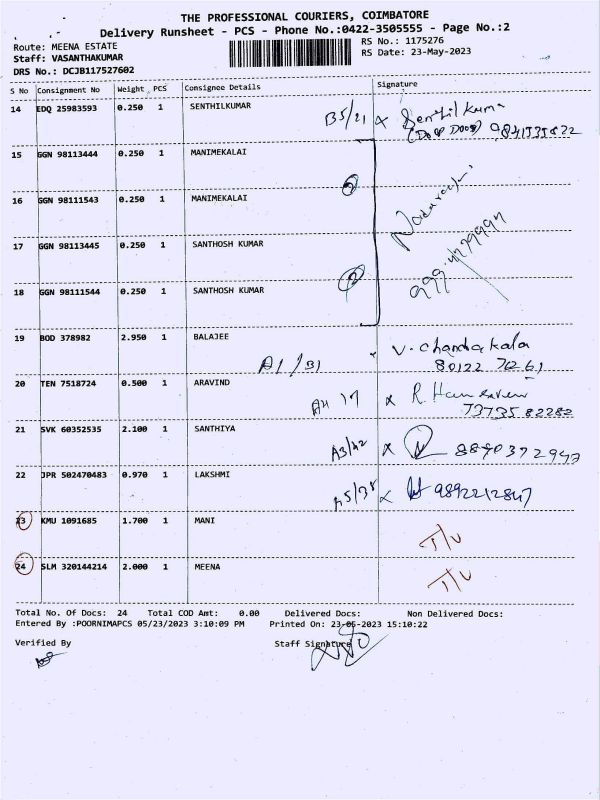 THE PROFESSIONAL COURIERS, COIMBATORE
Delivery Runsheet - PCS - Phone No.:0422-3505555 - Page No.:2
Route: MEENA ESTATE
RS No.: 1175276
Staff: VASANTHAKUMAR
RS Date: 23-May-2023
DRS No.: DCJB117527602
S No Consignment No Weight PCS Consignee Details Signature
14 EDQ 25983593 0.250 1 SENTHILKUMAR B5/21 x Senthilkumar
(Door Door)
15 GGN 98113444 0.250 1 MANIMEKALAI
2
16 GGN 98111543 0.250 1 MANIMEKALAI
17 GGN 98113445 0.250 1 SANTHOSH KUMAR
2
18 GGN 98111544 0.250 1 SANTHOSH KUMAR
19 BOD 378982 2.950 1 BALAJEE
A1/B1 V. Chandrakala
80122 70261
20 TEN 7518724 0.500 1 ARAVIND
x R.
73735 82282
21 SVK 60352535 2.100 1 SANTHIYA
A3/42 x 8870372943
22 JPR 502470483 0.970 1 LAKSHMI
x 9892212847
23 KMU 1091685 1.700 1 MANI
T/U
24 SLM 320144214 2.000 1 MEENA
T/U
Total No. Of Docs: 24 Total COD Amt: 0.00 Delivered Docs: Non Delivered Docs:
Entered By :POORNIMAPCS 05/23/2023 3:10:09 PM Printed On: 23-05-2023 15:10:22
Verified By Staff Signature